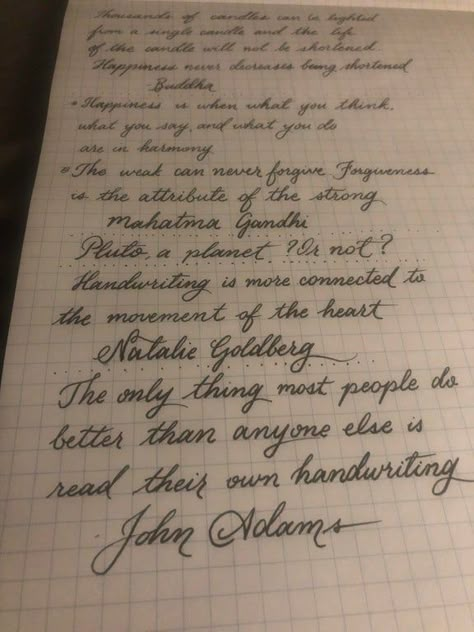 Thousands of candles can be lighted
from a single candle and the life
of the candle will not be shortened.
Happiness never decreases being shortened
Buddha
Happiness is when what you think,
what you say, and what you do
are in harmony.
The weak can never forgive Forgiveness
is the attribute of the strong
Mahatma Gandhi
Pluto, a planet ? Or not ?
Handwriting is more connected to
the movement of the heart
Natalie Goldberg
The only thing most people do
better than anyone else is
read their own handwriting
John Adams